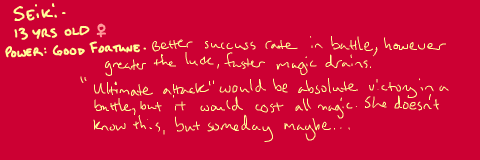 SEiKi.-
13 YRS OLD ♀
POWER: GOOD FORTUNE. Better success rate in battle, however
greater the luck, faster magic drains.
"Ultimate attack" would be absolute victory in a
battle, but it would cost all magic. She doesn't
know this, but someday maybe...